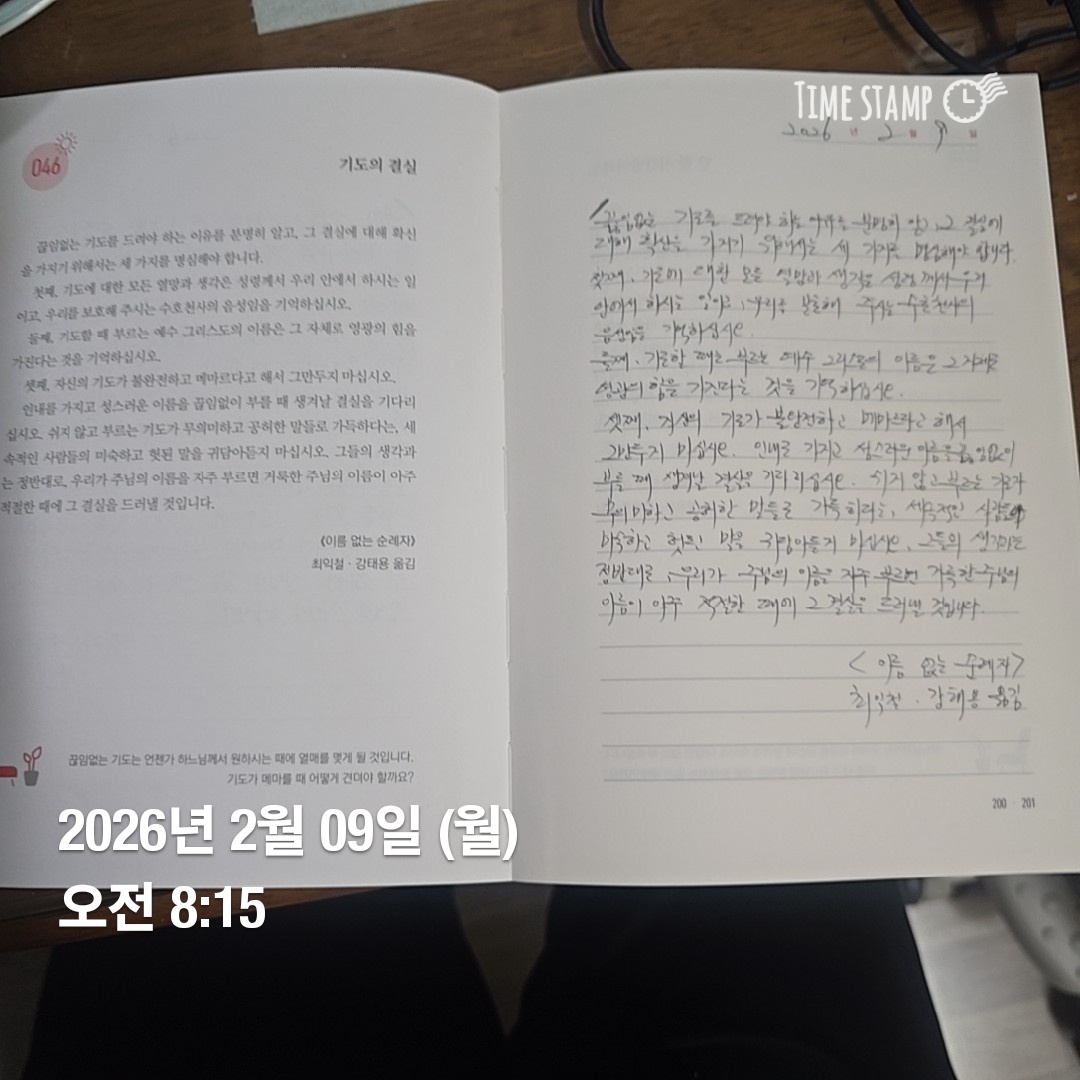 TIME STAMP
046
기도의 결실
끊임없는 기도를 드려야 하는 이유를 분명히 알고, 그 결실에 대해 확신
을 가지기 위해서는 세 가지를 명심해야 합니다.
첫째, 기도에 대한 모든 열망과 생각은 성령께서 우리 안에서 하시는 일
이고, 우리를 보호해 주시는 수호천사의 음성임을 기억하십시오.
둘째, 기도할 때 부르는 예수 그리스도의 이름은 그 자체로 영광의 힘을
가진다는 것을 기억하십시오.
셋째, 자신의 기도가 불완전하고 메마르다고 해서 그만두지 마십시오.
인내를 가지고 성스러운 이름을 끊임없이 부를 때 생겨날 결실을 기다리
십시오. 쉬지 않고 부르는 기도가 무의미하고 공허한 말들로 가득하다는, 세
속적인 사람들의 미숙하고 헛된 말을 귀담아듣지 마십시오. 그들의 생각과
는 정반대로, 우리가 주님의 이름을 자주 부르면 거룩한 주님의 이름이 아주
적절한 때에 그 결실을 드러낼 것입니다.
《이름 없는 순례자》
최익철 · 강태용 옮김
끊임없는 기도는 언젠가 하느님께서 원하시는 때에 열매를 맺게 될 것입니다.
기도가 메마를 때 어떻게 견뎌야 할까요?
2026 년 2 월 9 일
끊임없는 기도를 드려야 하는 이유를 분명히 알고, 그 결실에
대해 확신을 가지기 위해서는 세 가지를 명심해야 합니다.
첫째, 기도에 대한 모든 열망과 생각은 성령께서 우리
안에서 하시는 일이고, 우리를 보호해 주시는 수호천사의
음성임을 기억하십시오.
둘째, 기도할 때 부르는 예수 그리스도의 이름은 그 자체로
영광의 힘을 가진다는 것을 기억하십시오.
셋째, 자신의 기도가 불완전하고 메마르다고 해서
그만두지 마십시오. 인내를 가지고 성스러운 이름을 끊임없이
부를 때 생겨날 결실을 기다리십시오. 쉬지 않고 부르는 기도가
무의미하고 공허한 말들로 가득하다는, 세속적인 사람들의
미숙하고 헛된 말을 귀담아듣지 마십시오. 그들의 생각과는
정반대로, 우리가 주님의 이름을 자주 부르면 거룩한 주님의
이름이 아주 적절한 때에 그 결실을 드러낼 것입니다.
<이름 없는 순례자>
최익철 · 강태용 옮김
200 · 201
2026년 2월 09일 (월)
오전 8:15